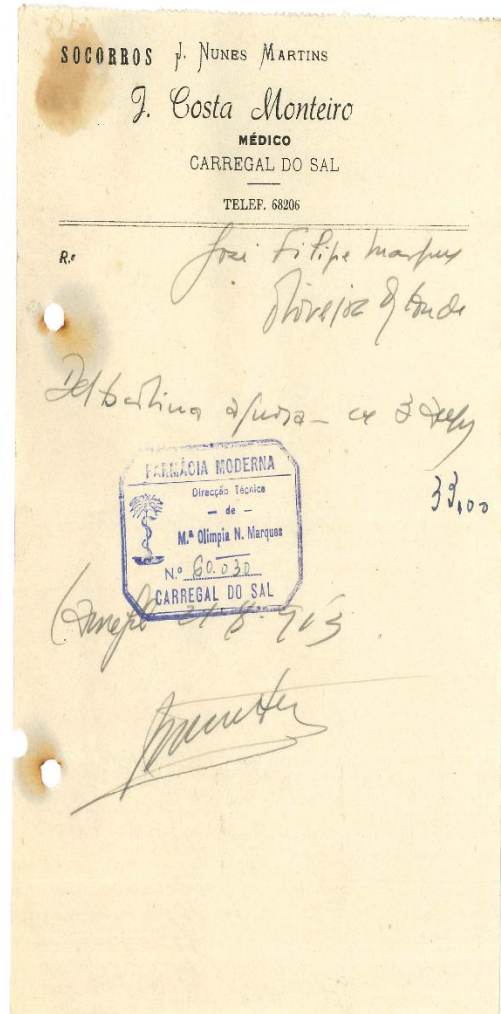 SOCORROS J. NUNES MARTINS
J. Costa Monteiro
MÉDICO
CARREGAL DO SAL
TELEF. 68206
R.e
José Filipe Marques
Oliveira Conde
33,00
FARMÁCIA MODERNA
Direcção Técnica
— de —
M.ª Olímpia N. Marques
N.º 60.030
CARREGAL DO SAL
Carregal 21-8-